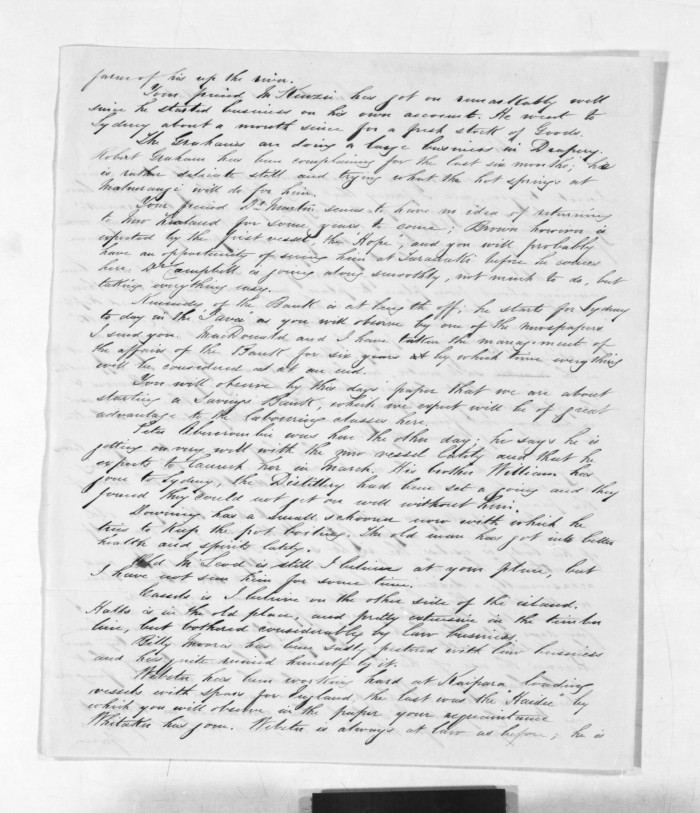 farm of his up the river.
Your friend McKenzie has got on remarkably well
since he started business on his own account. He went to
Sydney about a month since for a fresh stock of Goods.
The Grahams are doing a large business in Drapery.
Robert Graham has been complaining for the last six months; he
is rather delicate still and trying what the hot springs at
will do for him.
Your friend Dr Martin seems to have no idea of returning
to New Zealand for some years to come; Brown however is
expected by the first vessel, the Hope, and you will probably
have an opportunity of seeing him at Taranaki before he comes
here. Dr Campbell is going along smoothly, not much to do, but
taking everything easy.
Kennedy of the Bank is at length off; he starts for Sydney
to day in the "Java" as you will observe by one of the newspapers
I send you. MacDonald and I have taken the management of
the affairs of the Bank for six years by which time everything
will be considered as at an end.
You will observe by this days' paper that we are about
starting a Savings Bank, which we expect will be of great
advantage to the labouring classes here.
Peter Abercrombie was here the other day; he says he is
getting on very well with the new vessel lately and that he
expects to launch her in March. His brother William has
gone to Sydney, the Distillery had been set a going and they
found they could not get on well without him.
Downing has a small schooner now with which he
tries to keep the pot boiling. The old man has got into better
health and spirits lately.
Old McLeod is still I believe at your place, but
I have not seen him for some time.
is I believe on the other side of the island.
Halls is in the old place, and pretty extensive in the timber
line, but bothered considerably by law business.
Billy Moores has been sadly pestered with law business
and has quite ruined himself by it.
Webster has been working hard at Kaipara loading
vessels with spars for England, the last was the Haidee by
which you will observe in the paper your acquaintance
Whitaker has gone. Webster is always at law as before; he is